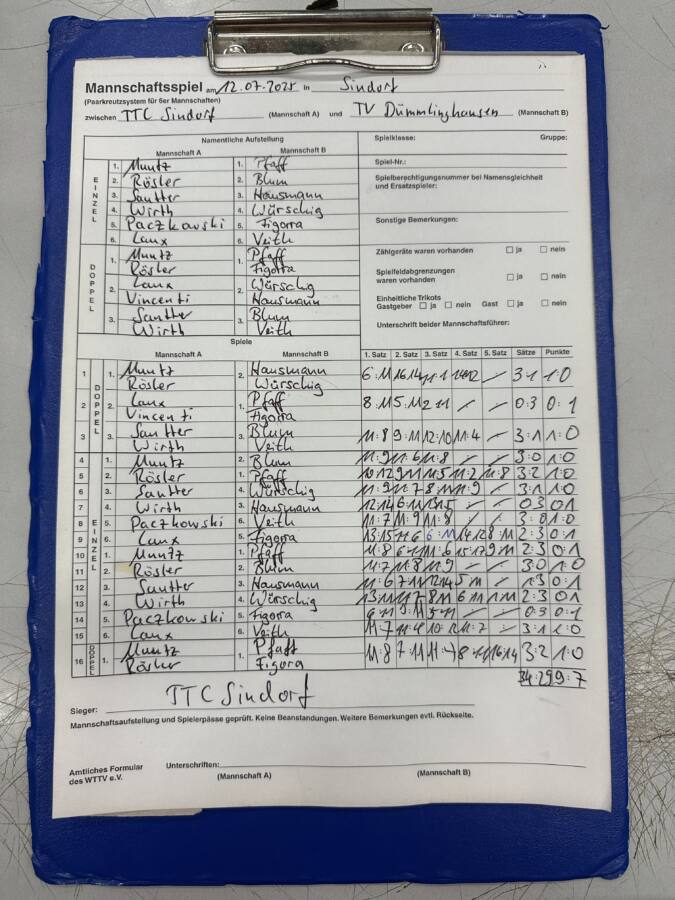 Mannschaftsspiel am 12.07.2025 in Sindorf
(Paarkreuzsystem für 6er Mannschaften)
zwischen TTC Sindorf (Mannschaft A) und TV Dümmlinghausen (Mannschaft B)
Namentliche Aufstellung
Mannschaft A Mannschaft B
EINZEL
1. Muntz 1. Pfaff
2. Rösler 2. Blum
3. Sautter 3. Hausmann
4. Wirth 4. Würschig
5. Paczkowski 5. Figorra
6. Laux 6. Veith
DOPPEL
1. Muntz 1. Pfaff
Rösler Figorra
2. Laux 2. Würschig
Vincenti Hausmann
3. Sautter 3. Blum
Wirth Veith
Spielklasse: Gruppe:
Spiel-Nr.:
Spielberechtigungsnummer bei Namensgleichheit
und Ersatzspieler:
Sonstige Bemerkungen:
Zählgeräte waren vorhanden ja nein
Spielfeldabgrenzungen
waren vorhanden ja nein
Einheitliche Trikots
Gastgeber ja nein Gast ja nein
Unterschrift beider Mannschaftsführer:
Spiele
Mannschaft A Mannschaft B 1. Satz 2. Satz 3. Satz 4. Satz 5. Satz Sätze Punkte
DOPPEL
1 1. Muntz 2. Hausmann 6:11 16:14 3:1 1:0
Rösler Würschig
2 2. Laux 1. Pfaff 8:11 5:11 2:11 0:3 0:1
Vincenti Figorra
3 3. Sautter 3. Blum 11:8 9:11 12:10 11:4 3:1 1:0
Wirth Veith
EINZEL
4 1. Muntz 2. Blum 11:9 11:6 11:8 3:0 1:0
5 2. Rösler 1. Pfaff 10:12 9:11 11:5 11:2 11:8 3:2 1:0
6 3. Sautter 4. Würschig 11:9 11:7 8:11 11:9 3:1 1:0
7 4. Wirth 3. Hausmann 12:14 6:11 0:3 0:1
8 5. Paczkowski 6. Veith 11:7 11:9 11:8 3:0 1:0
9 6. Laux 5. Figorra 13:15 11:6 6:11 14:12 8:11 2:3 0:1
10 1. Muntz 1. Pfaff 11:8 6:11 11:6 15:17 9:11 2:3 0:1
11 2. Rösler 2. Blum 11:7 11:8 11:9 3:0 1:0
12 3. Sautter 3. Hausmann 11:6 7:11 12:14 5:11 1:3 0:1
13 4. Wirth 4. Würschig 13:11 11:7 8:11 6:11 2:3 0:1
14 5. Paczkowski 5. Figorra 6:11 9:11 5:11 0:3 0:1
15 6. Laux 6. Veith 11:7 11:7 3:1 1:0
DOPPEL
16 1. Muntz 1. Pfaff 11:8 7:11 8:11 16:14 3:2 1:0
Rösler Figora
34:29 9:7
Sieger: TTC Sindorf
Mannschaftsaufstellung und Spielerpässe geprüft. Keine Beanstandungen. Weitere Bemerkungen evtl. Rückseite.
Amtliches Formular
des WTTV e.V.
Unterschriften:
(Mannschaft A) (Mannschaft B)